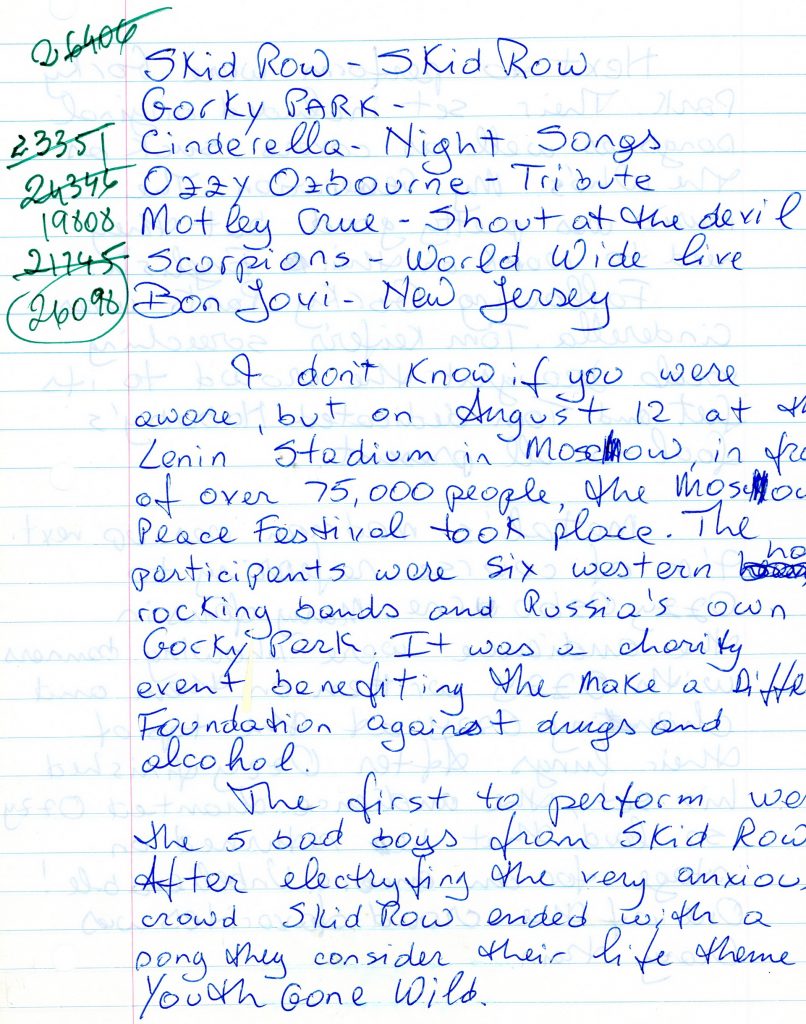 26406
Skid Row - Skid Row
Gorky PARK -
23351 Cinderella - Night Songs
24346 Ozzy Ozbourne - Tribute
19808 Motley Crue - Shout at the devil
21745 Scorpions - World Wide live
26098 Bon Jovi - New Jersey
I don't know if you were
aware, but on August 12 at th
Lenin Stadium in Moscow, in fro
of over 75,000 people, the Moscow
Peace Festival took place. The
participants were six western
rocking bands and Russia's own
Gorky Park. It was a charity
event benefiting the Make a Diffe
Foundation against drugs and
alcohol.
The first to perform we
the 5 bad boys from Skid Row
After electryfing the very anxiou
crowd Skid Row ended with a
song they consider their life theme
Youth Gone Wild.